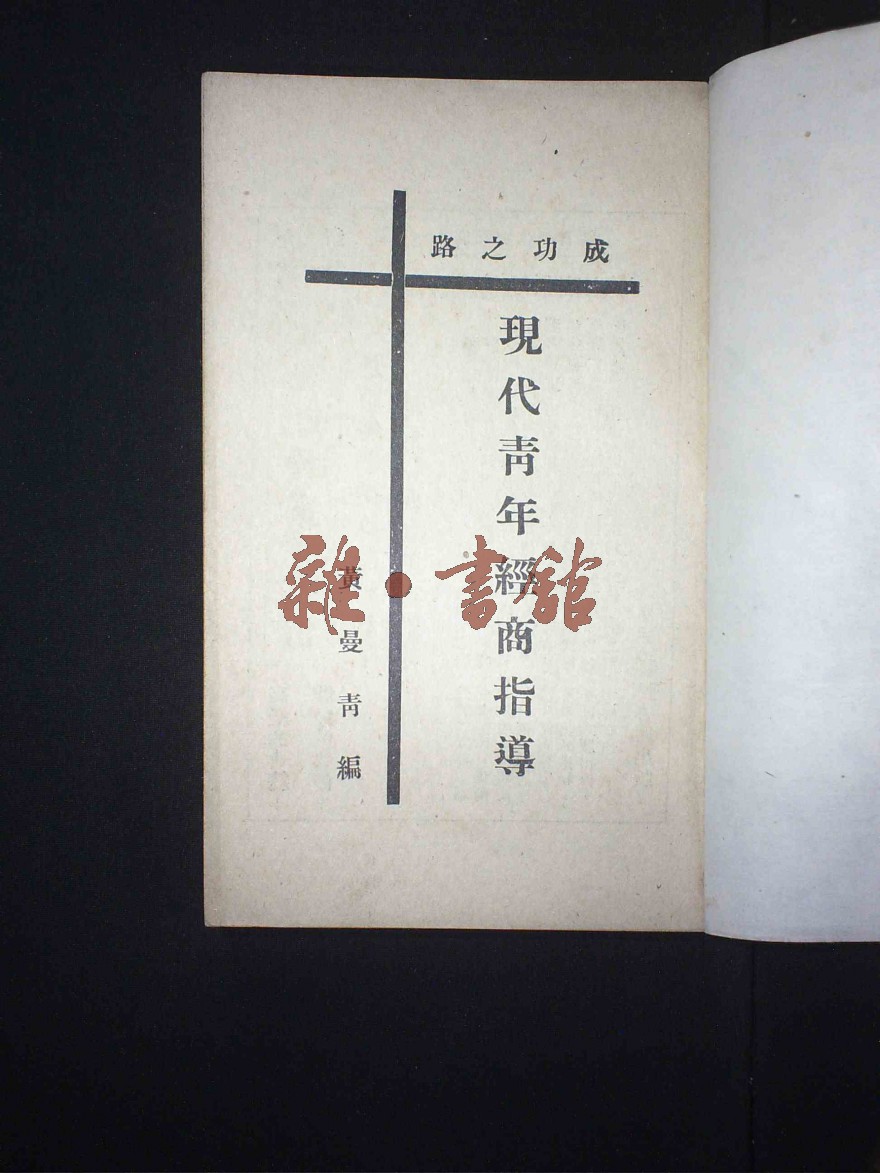 成功之路
現代靑年經商指導
黃曼靑編
雜·書舘